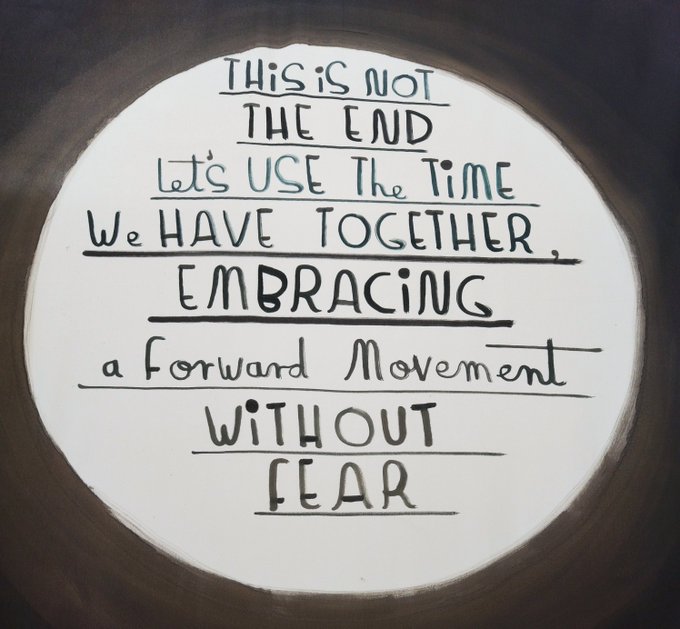 THiS iS NOT
THE END
Let's USE The TiME
We HAVE TOGETHER,
EMBRACiNG
a forward Movement
WiTHOUT
FEAR